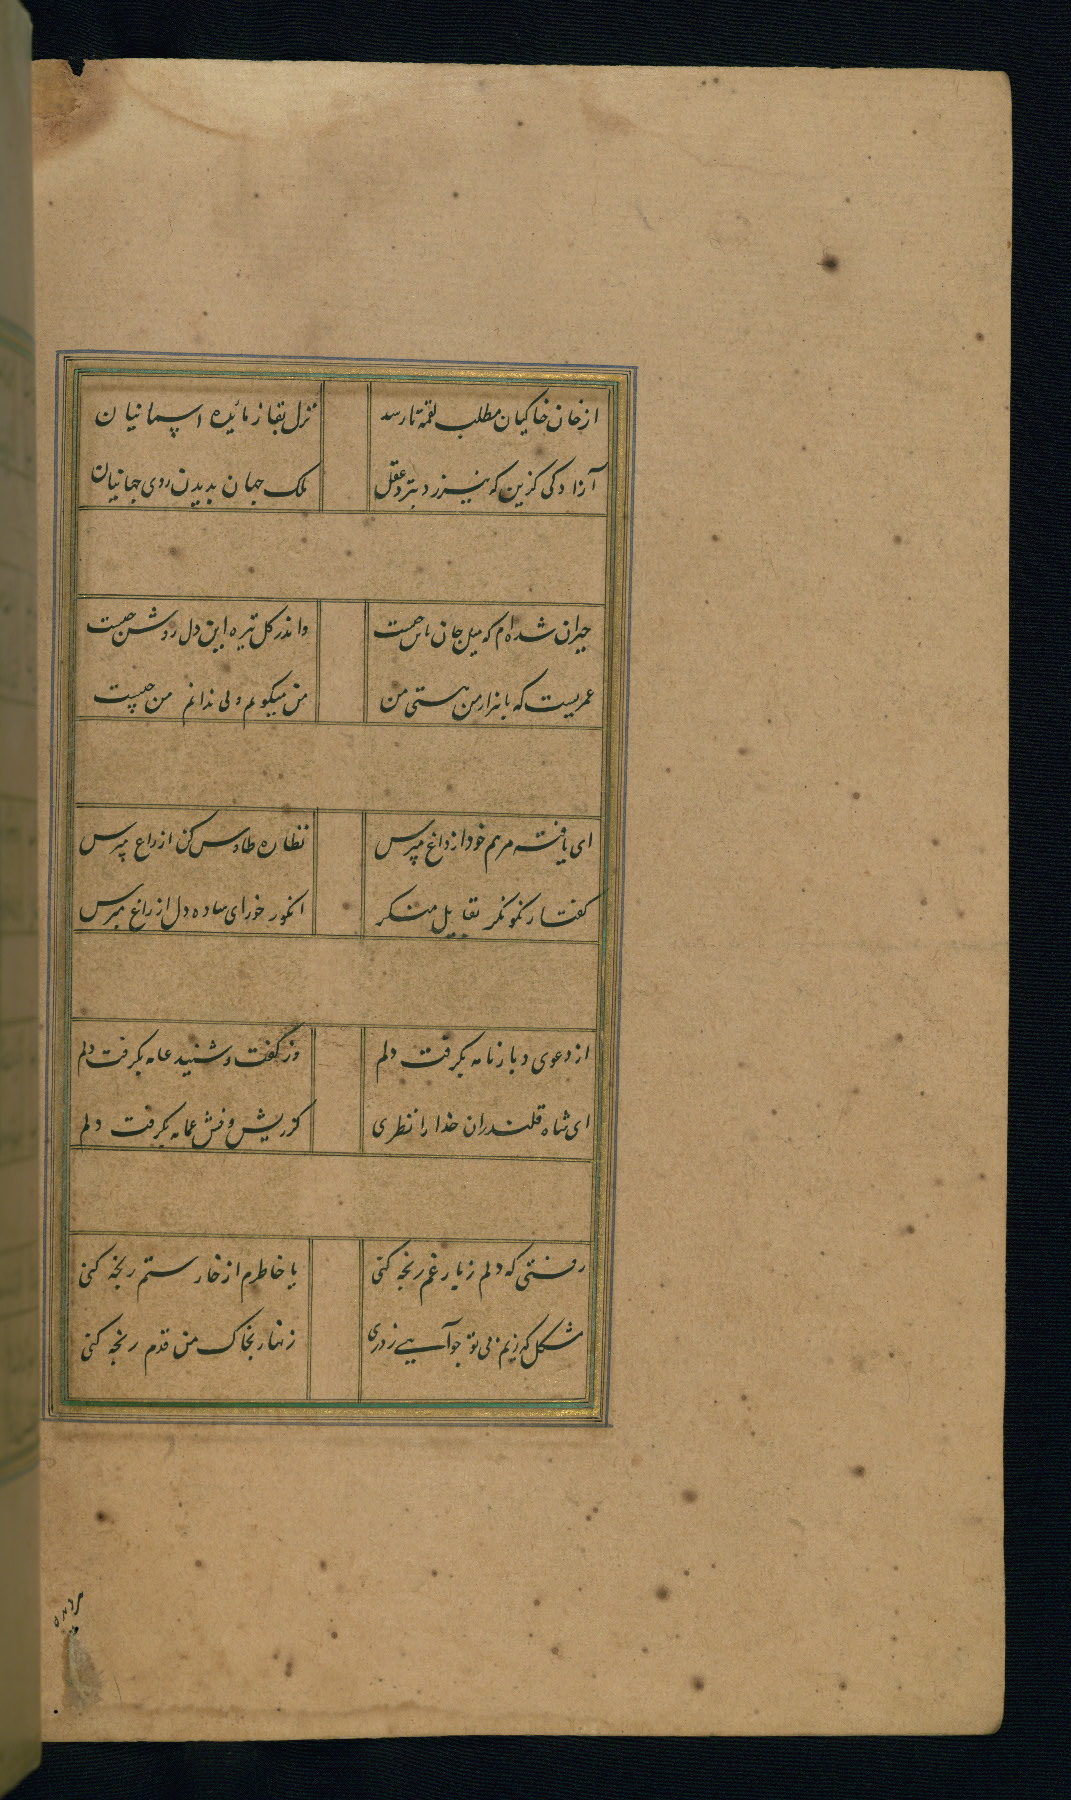 از خان خاکیان مطلب لقمه تا رسد نزل بقا ز مائده اسمانیان
آزادگی گزین که نیرزد بنزد عقل ملک جهان بدیدن روی جهانیان
حیران شده‌ام که میل جان با من چیست واندر کل تیره این دل روشن چیست
عمریست که با هزار من هستی من من میگویم ولی ندانم من چیست
ای یافته مرهم خود از داغ مپرس نظاره طاوس کن از زاغ مپرس
گفتار نکو نگر بقایل منگر انگور خور ای ساده دل از باغ مپرس
از دعوی و بارنامه بگرفت دلم وز گفت و شنید عامه بگرفت دلم
ای شاه قلندران خدا را نظری کز ریش و فش عمامه بگرفت دلم
رفتی که دلم ز بار غم رنجه کنی یا خاطرم از خار ستم رنجه کنی
مشکل که زیم بی تو چو آیی ز دری زنهار بخاک من قدم رنجه کنی